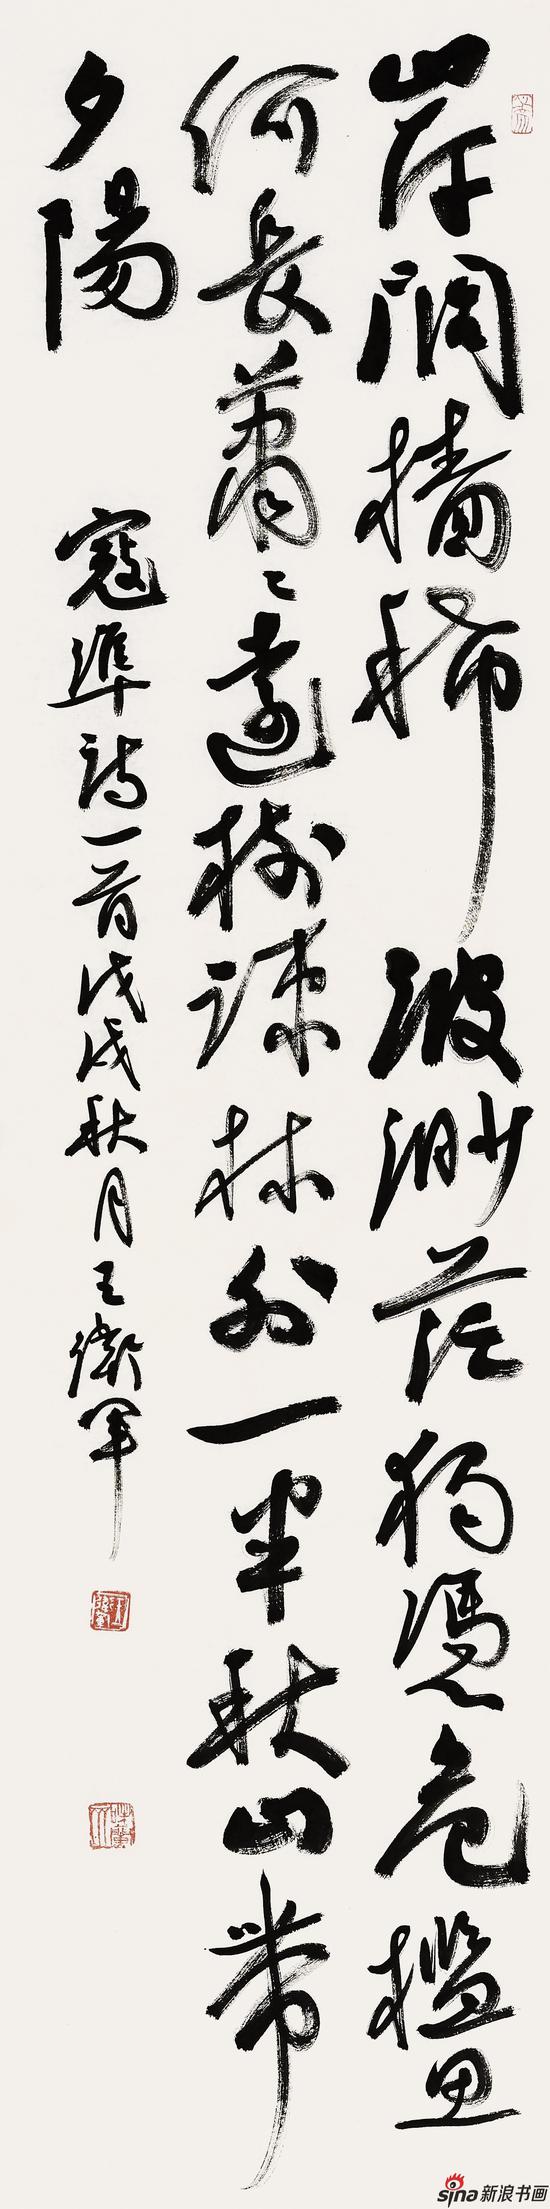 岸闊檣稀波渺茫獨憑危檻思
何長蕭〻遠樹疎林外一半秋山帶
夕陽
寇準詩一首戊戌秋月王衛軍
sina新浪书画